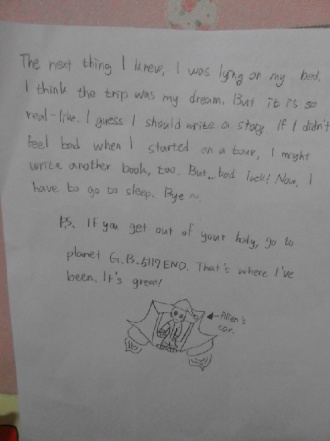 The next thing I knew, I was lying on my bed.
I think the trip was my dream. But it is so
real-like. I guess I should write a story. If I didn't
feel bad when I started on a tour, I might
write another book, too. But.. bad luck! Now, I
have to go to sleep. Bye ~
P.S. If you get out of your body, go to
planet G.B.5117END. That's where I've
been. It's great!
Alien's
car.